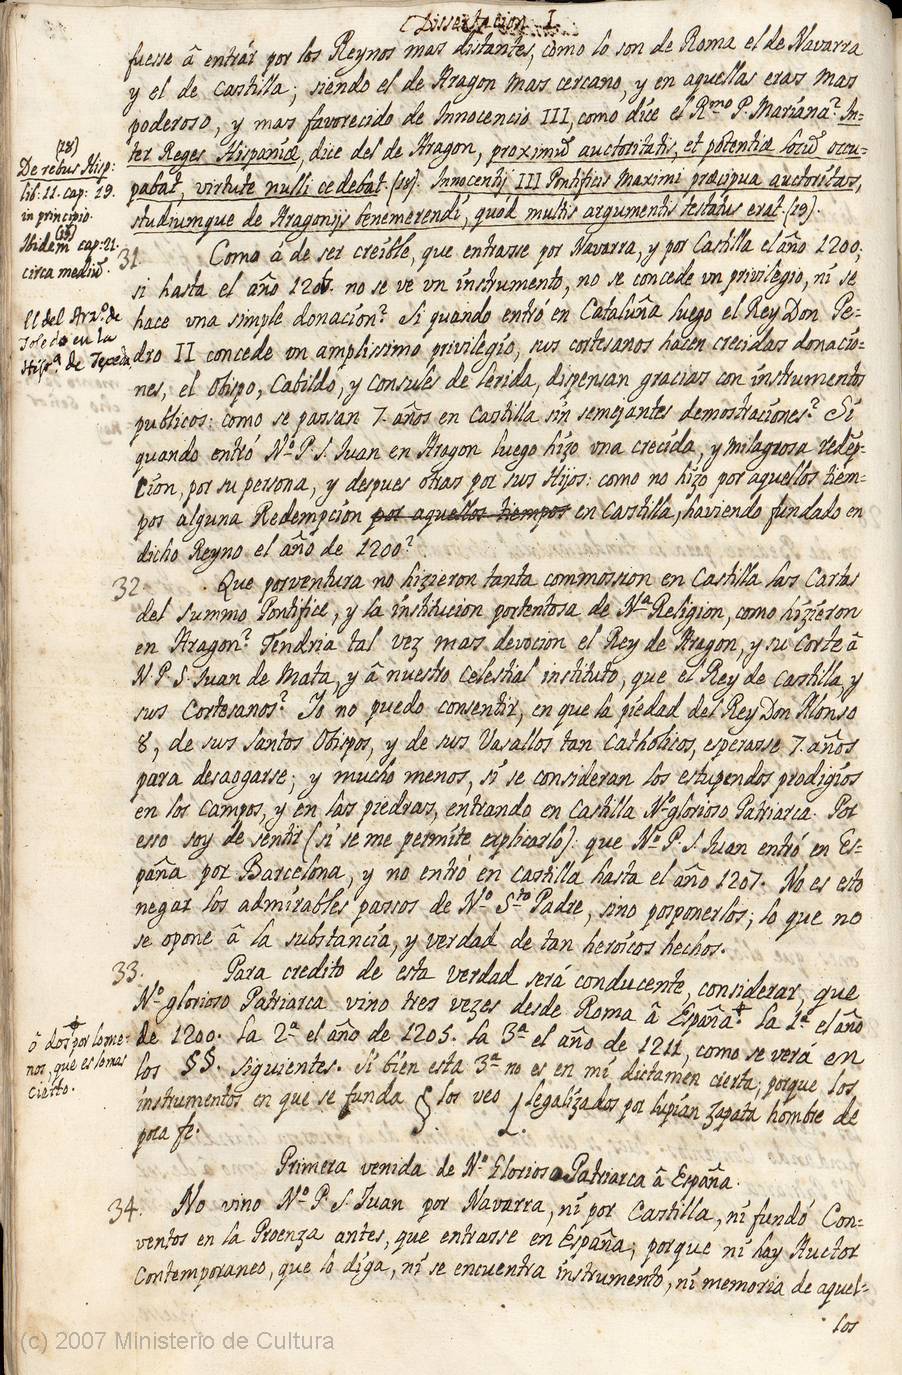 Dissertacion I.
fuesse â entrar por los Reynos mas distantes, como lo son de Roma el de Navarra
y el de Castilla; siendo el de Aragon mas cercano, y en aquellas eras mas
poderoso, y mas favorecido de Innocencio III, como dice el Rmo P. Mariana? In-
ter Reges Hispaniæ, dice del de Aragon, proximũ auctoritatis, et potentiæ locũ occu-
pabat, virtute nulli cedebat. (18). Innocentij III Pontificis Maximi præcipua auctoritas,
studiumque de Aragonijs benemerendi, quod multis argumentis testatus erat. (19).
(18)
De rebus Hisp:
lib: 11. cap: 19.
in principio.
(19)
Ibidem cap: 21.
circa mediũ.
31. Como â de ser creible, que entrasse por Navarra, y por Castilla el año 1200;
si hasta el año 1206. no se ve vn instrumento, no se concede vn privilegio, ni se
hace vna simple donacion? Si quando entró en Cataluña luego el Rey Don Pe-
dro II concede vn amplissimo privilegio, sus cortesanos hacen crecidas donacio-
nes, el Obispo, Cabildo, y Consules de Lerida, dispensan gracias con instrumentos
publicos: como se passan 7. años en Castilla sin semejantes demostraciones? Si
quando entró No. P. S. Juan en Aragon luego hizo vna crecida, y milagrosa redẽp-
cion, por su persona, y despues otras por sus Hijos: como no hizo por aquellos tiem-
pos alguna Redempcion por aquellos tiempos en Castilla, haviendo fundado en
dicho Reyno el año de 1200?
El del Arzo. de
Toledo en la
de
32. Que porventura no hizieron tanta commossion en Castilla las Cartas
del Summo Pontifice, y la institucion portentosa de Na. Religion, como hizieron
en Aragon? Tendria tal vez mas devocion el Rey de Aragon, y su Corte â
N. P. S. Juan de Mata, y â nuestro celestial instituto, que el Rey de Castilla, y
sus Cortesanos? Yo no puedo consentir, en que la piedad del Rey Don Alonso
8, de sus santos Obispos, y de sus Vasallos tan Catholicos, esperasse 7. años
para desaogarse; y mucho menos, si se consideran los estupendos prodigios
en los campos, y en las piedras, entrando en Castilla No. glorioso Patriarca. Por
esso soy de sentir (si se me permite explicarlo) que No. P. S. Juan entró en Es-
paña por Barcelona, y no entró en Castilla hasta el año 1207. No es esto
negar los admirables passos de No. Sto. Padre, sino posponerlos; lo que no
se opone â la substancia, y verdad de tan heroicos hechos.
33. Para credito de esta verdad será conducente, considerar, que
No. glorioso Patriarca vino tres vezes desde Roma â España. La 1a. el año
de 1200. La 2a. el año de 1205. La 3a. el año de 1211, como se verá en
los §§. siguientes. Si bien esta 3a. no es en mi dictamen cierta; porque los
instrumentos en que se funda los veo legalizados por Lupian Zapata hombre de
poca fe.
ô dos por lo me-
nos, que es lo mas
cierto.
Primera venida de No. Glorioso Patriarca â España.
34. No vino No. P. S. Juan por Navarra, ni por Castilla, ni fundó Con-
ventos en la Proenza antes, que entrasse en España; porque ni hay Auctor
Contemporaneo, que lo diga, ni se encuentra instrumento, ni memoria de aquel-
los
(c) 2007 Ministerio de Cultura